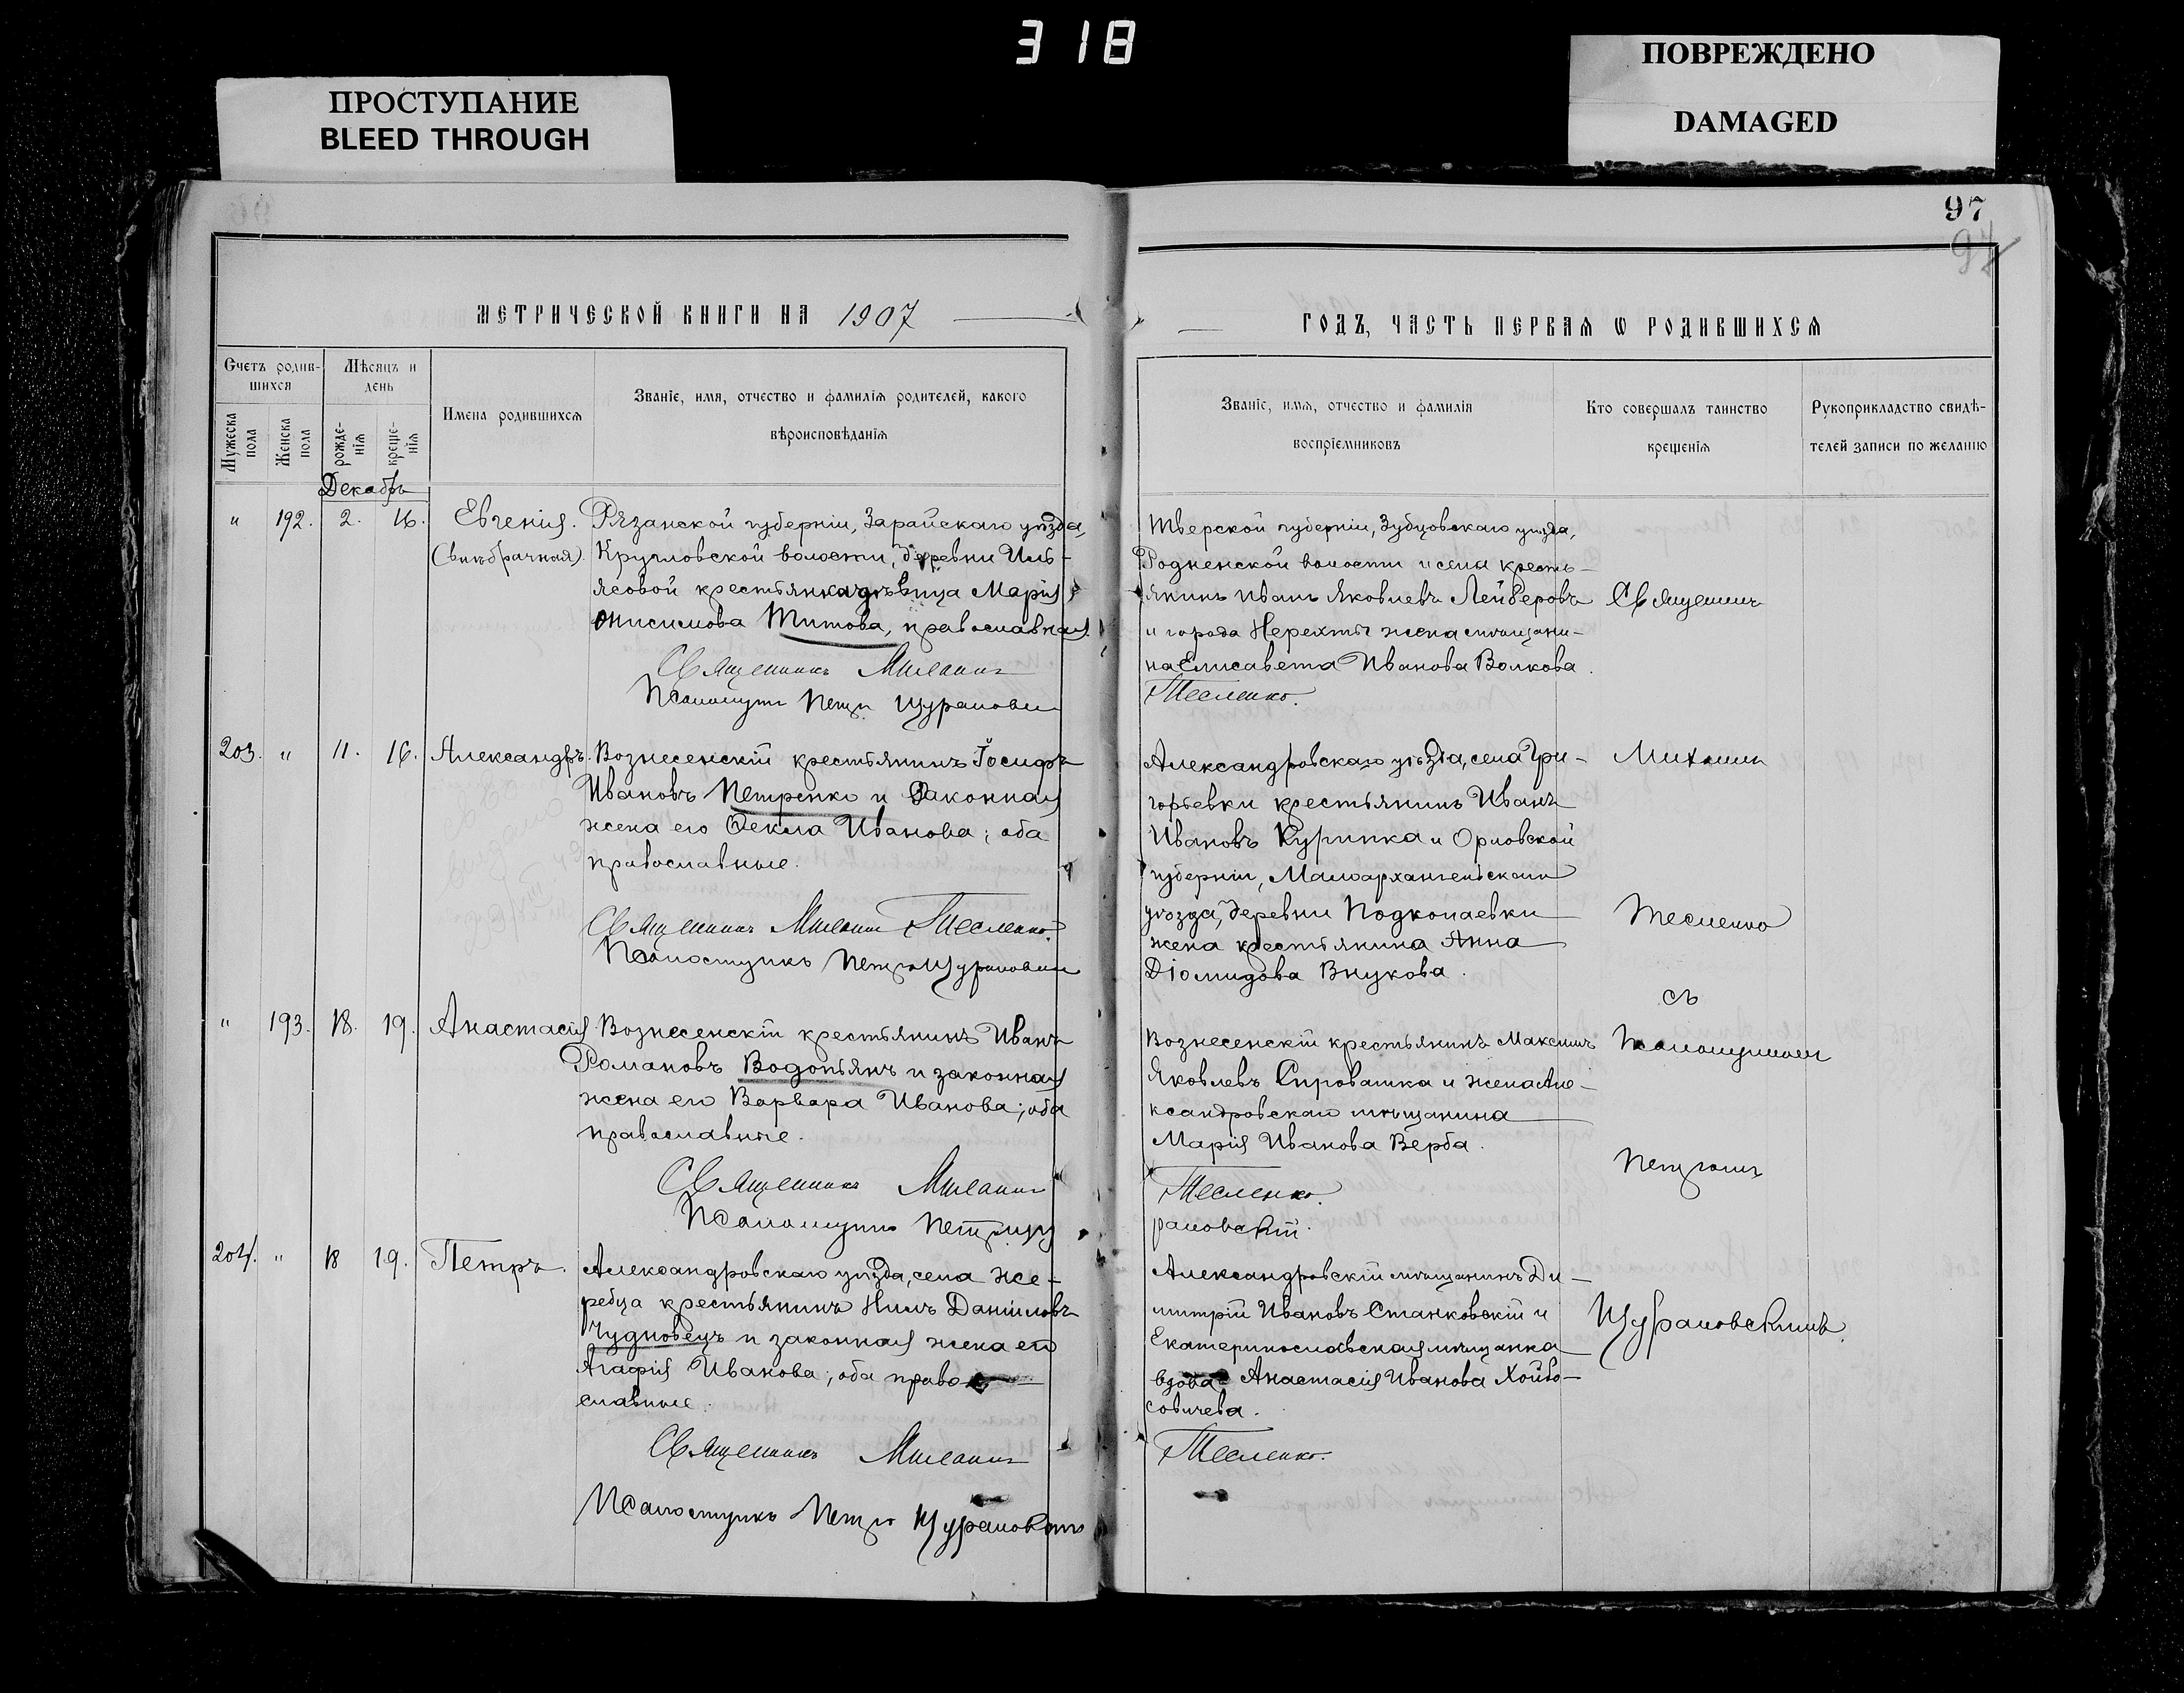 318
ПРОСТУПАНИЕ
BLEED THROUGH
ПОВРЕЖДЕНО
DAMAGED
97
97
МЕТРИЧЕСКОЙ КНИГИ НА 1907
Счетъ родив-
шихся
Мѣсяцъ и
день
Мужеска
пола
Женска
пола
рожде-
нія
креще-
нія
Имена родившихся
Званіе, имя, отчество и фамилія родителей, какого
вѣроисповѣданія
Декабрь
" 192. 2. 16. Евгенія. Рязанской губерніи, Зарайскаго уѣзда,
(внѣбрачная). Кругловской волости, деревни Иль-
ясовой крестьянка дѣвица Марія
Онисимова Титова, православная.
Священникъ Михаилъ
Псаломщикъ Петръ Щурановскій
203. " 11. 16. Александръ. Вознесенскій крестьянинъ Іосифъ
Ивановъ Петренко и законная
жена его Ѳекла Иванова; оба
православные.
Священникъ Михаилъ Тесленко.
Псаломщикъ Петръ Щурановскій
" 193. 18. 19. Анастасія. Вознесенскій крестьянинъ Иванъ
Романовъ Водопьянъ и законная
жена его Варвара Иванова; оба
православные.
Священникъ Михаилъ
Псаломщикъ Петръ Щу
204. " 18 19. Петръ. Александровскаго уѣзда, села Же-
ребца крестьянинъ Нилъ Даніиловъ
Чудновецъ и законная жена его
Агафія Иванова; оба право-
славные.
Священникъ Михаилъ
Псаломщикъ Петръ Щурановскій
ГОДЪ, ЧАСТЬ ПЕРВАЯ Ѡ РОДИВШИХСЯ
Званіе, имя, отчество и фамилія
воспріемниковъ
Кто совершалъ таинство
крещенія
Рукоприкладство свидѣ-
телей записи по желанію
Тверской губерніи, Зубцовскаго уѣзда,
Родненской волости и села кресть-
янинъ Иванъ Яковлевъ Лейберовъ
и города Нерехты жена мѣщани-
на Елисавета Иванова Волкова.
Тесленко.
Александровскаго уѣзда, села Гри-
горьевки крестьянинъ Иванъ
Ивановъ Курипка и Орловской
губерніи, Малоархангельскаго
уѣзда, деревни Подкопаевки
жена крестьянина Анна
Діомидова Внукова.
Вознесенскій крестьянинъ Максимъ
Яковлевъ Сировашка и жена Але-
ксандровскаго мѣщанина
Марія Иванова Верба.
Тесленко.
рановскій.
Александровскій мѣщанинъ Ди-
митрій Ивановъ Станковскій и
Екатеринославская мѣщанка
вдова Анастасія Иванова
Тесленко.
Священникъ
Михаилъ
Тесленко
съ
Псаломщикомъ
Петромъ
Щурановскимъ.